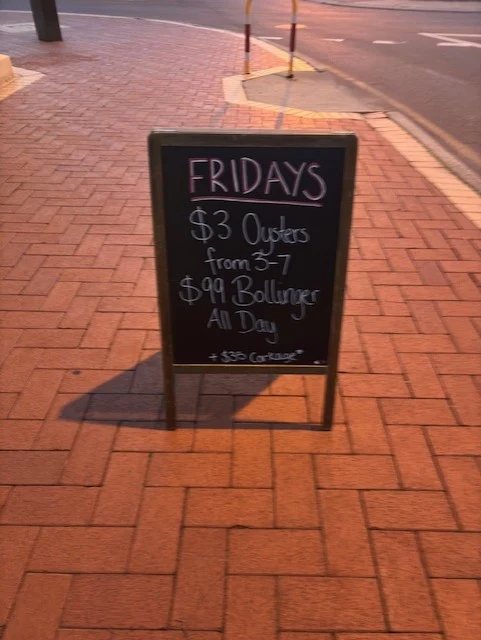 FRIDAYS
$3 Oysters
from 3-7
$99 Bollinger
All Day
+ $35 Corkage*